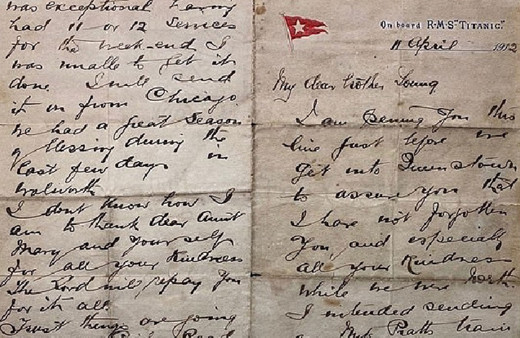 On board R·M·S "TITANIC."
11 April 1912
My dear brother Young
I am penning you this
line just before we
get into Queenstown
to assure you that
I have not forgotten
you and especially
all your kindness
while we were North.
I intended sending
Mrs Pratts train
was exceptional Having
had 11 or 12 services
for the week-end I
was unable to get it
done I will send
it on from Chicago
We had a great season
of blessing during the
last few days in
Walworth
I dont know how I
am to thank dear Aunt
Mary and yourself
for all your kindness
The Lord will repay you
for it all
Trust things are going
Road